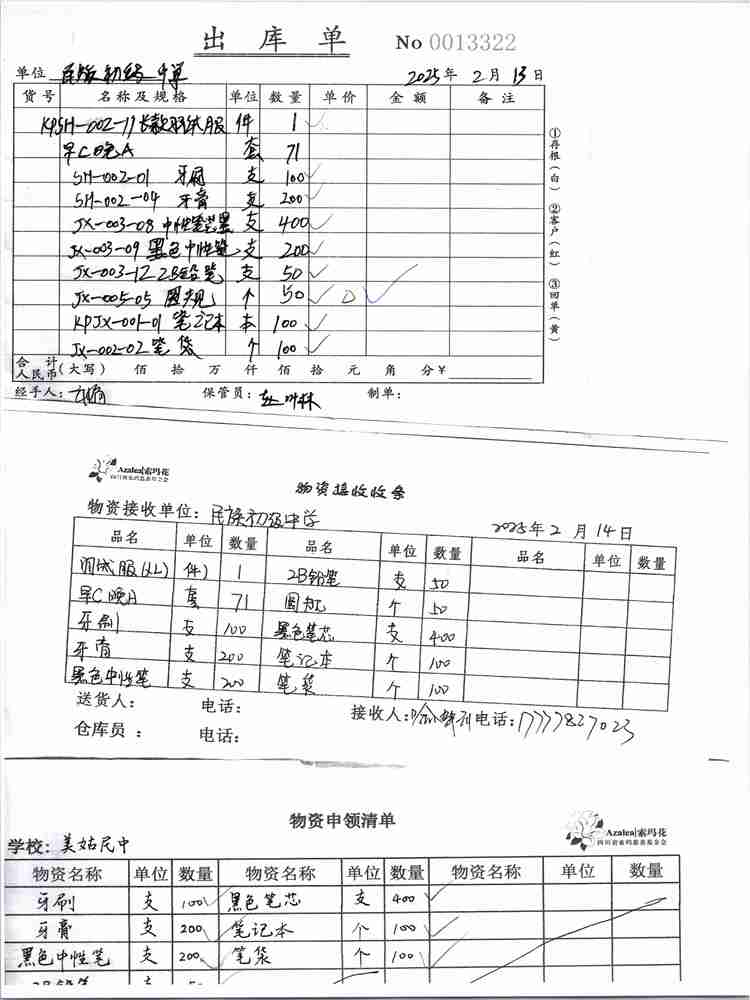 出库单 No 0013322
单位 民族初级中学 2025年 2月 13日
货号 名称及规格 单位 数量 单价 金额 备注
KPSH-002-11长款羽绒服 件 1
早C晚A 套 71
SH-002-01 牙刷 支 100
SH-002-04 牙膏 支 200
JX-003-08 中性笔芯黑 支 400
JX-003-09 黑色中性笔 支 200
JX-003-12 2B铅笔 支 50
JX-005-05 圆规 个 50
KPJX-001-01 笔记本 本 100
JX-002-02 笔袋 个 100
①存根(白) ②客户(红) ③回单(黄)
合计人民币(大写) 佰 拾 万 仟 佰 拾 元 角 分¥
经手人: 保管员: 制单:
Azalea|索玛花
四川省索玛慈善基金会
物资接收收条
物资接收单位: 民族初级中学 2025年 2月 14日
品名 单位 数量 品名 单位 数量 品名 单位 数量
羽绒服(XL) 件 1 2B铅笔 支 50
早C晚A 套 71 圆规 个 50
牙刷 支 100 黑色笔芯 支 400
牙膏 支 200 笔记本 个 100
黑色中性笔 支 200 笔袋 个 100
送货人: 电话: 接收人: 电话: 17777827023
仓库员: 电话:
物资申领清单
Azalea|索玛花
四川省索玛慈善基金会
学校: 美姑民中
物资名称 单位 数量 物资名称 单位 数量 物资名称 单位 数量
牙刷 支 100 黑色笔芯 支 400
牙膏 支 200 笔记本 个 100
黑色中性笔 支 200 笔袋 个 100